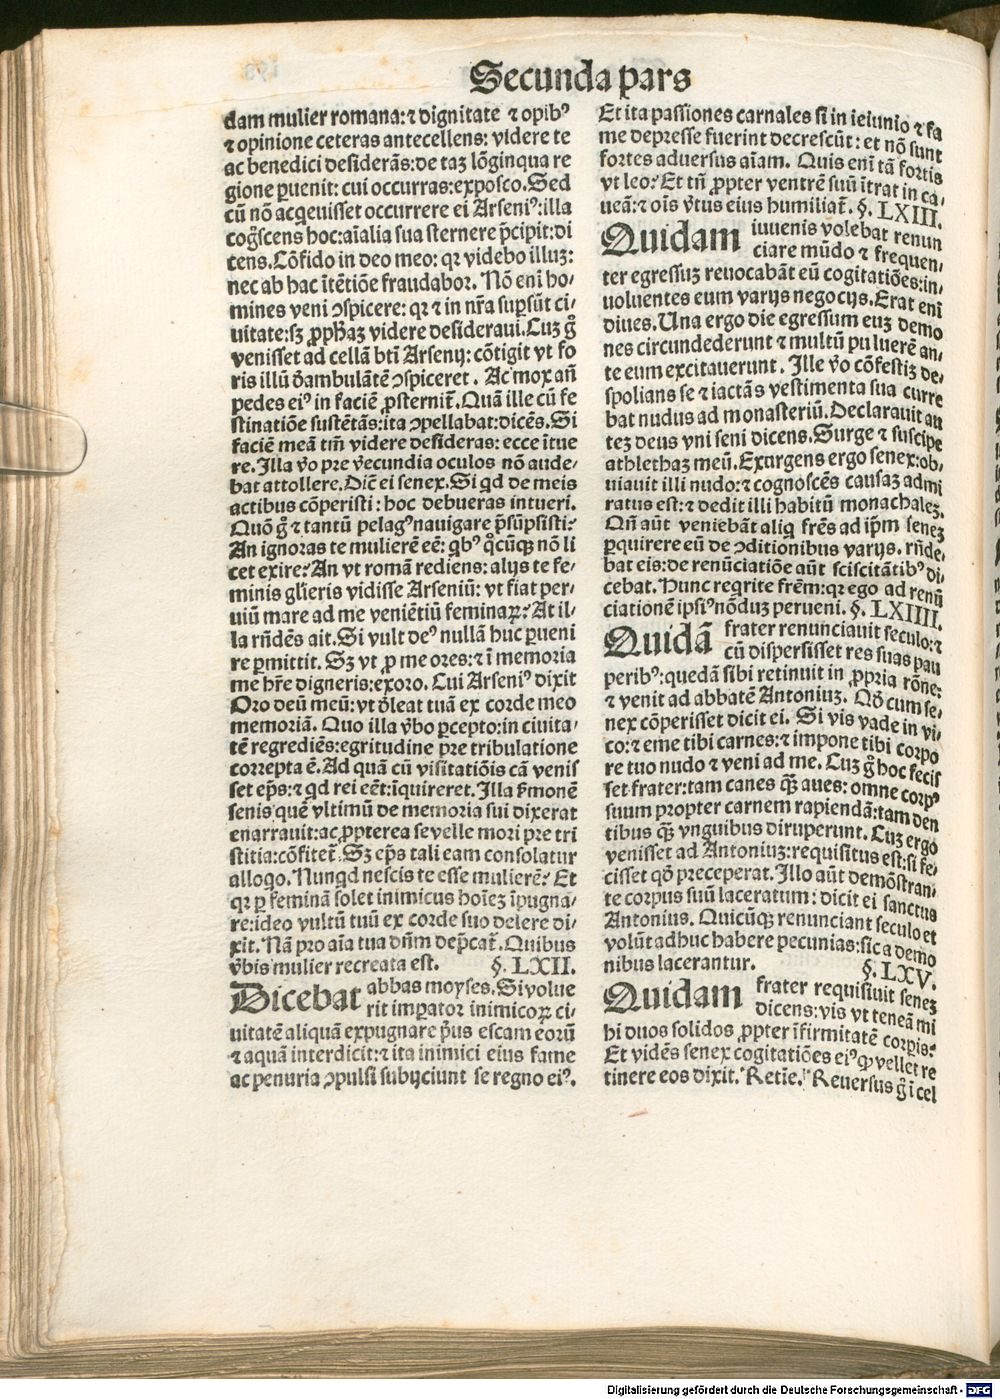 Secunda pars
dam mulier romana: ⁊ dignitate ⁊ opibꝰ
⁊ opinione ceteras antecellens: videre te
ac benedici desiderãs: de taꝫ lõginqua re
gione ꝑuenit: cui occurras: exposco. Sed
cũ nõ acqeuisset occurrere ei Arseniꝰ: illa
cog̃scens hoc: aĩalia sua sternere p̃cipit: di
cens. Cõfido in deo meo: qꝛ videbo illuꝫ:
nec ab hac ĩtẽtiõe fraudabor. Nõ enĩ ho-
mines veni ɔspicere: qꝛ ⁊ in nr̃a suꝑsũt ci-
uitate: sꝫ ꝓpħaꝫ videre desideraui. Cuꝫ g̃
venisset ad cellã bt̃i Arsenij: cõtigit vt fo
ris illũ d̃ambulãtẽ ɔspiceret. Ac mox añ
pedes eiꝰ in faciẽ ꝓsternit̃. Quã ille cũ fe
stinatiõe sustẽtãs: ita ɔpellabat: dicẽs. Si
faciẽ meã tm̃ videre desideras: ecce ĩtue
re. Illa ṽo pre ṽecundia oculos nõ aude-
bat attollere. Dic̃ ei senex. Si qd de meis
actibus cõperisti: hoc debueras intueri.
Quõ g̃ ⁊ tantũ pelagꝰ nauigare p̃sũpsisti?
An ignoras te mulierẽ eẽ: qbꝰ q̃cũqꝫ nõ li
cet exire? An vt romã rediens: alijs te fe-
minis gl̃ieris vidisse Arseniũ: vt fiat per-
uiũ mare ad me veniẽtiũ feminaꝝ? At il-
la rñdẽs ait. Si vult deꝰ nullã huc ꝑueni
re ꝑmittit. Sꝫ vt ꝓ me ores: ⁊ ĩ memoria
me hr̃e digneris: exoro. Cui Arseniꝰ dixit
Oro deũ meũ: vt d̃leat tuã ex corde meo
memoriã. Quo illa ṽbo ꝑcepto: in ciuita-
tẽ regrediẽs: egritudine pre tribulatione
correpta ẽ. Ad quã cũ visitatiõis cã venis
set ep̃s: ⁊ qd rei eẽt: ĩquireret. Illa ẜmonẽ
senis quẽ vltimũ de memoria sui dixerat
enarrauit: ac ꝓpterea se velle mori pre tri
stitia: cõfitet̃. Sꝫ ep̃s tali eam consolatur
alloqo. Nunqd nescis te esse mulierẽ? Et
qꝛ ꝑ feminã solet inimicus hoĩeꝫ ĩpugna-
re: ideo vultũ tuũ ex corde suo delere di-
xit. Nã pro aĩa tua dñm dep̃cat̃. Quibus
ṽbis mulier recreata est. §. LXII.
Dicebat abbas moyses. Si volue
rit imꝑator inimicoꝝ ci-
uitatẽ aliquã expugnare p̃us escam eorũ
⁊ aquã interdicit: ⁊ ita inimici eius fame
ac penuria ɔpulsi subijciunt se regno eiꝰ.
Et ita passiones carnales si in ieiunio ⁊ fa
me depresse fuerint decrescũt: et nõ sunt
fortes aduersus aĩam. Quis enĩ tã fortis
vt leo? Et tñ ꝓpter ventrẽ suũ ĩtrat in ca-
ueã: ⁊ oĩs v̓tus eius humiliat̃. §. LXIII.
Quidam iuuenis volebat renun
ciare mũdo ⁊ frequen-
ter egressuꝫ reuocabãt eũ cogitatiões: in-
uoluentes eum varijs negocijs. Erat enĩ
diues. Una ergo die egressum euꝫ demo
nes circundederunt ⁊ multũ puluerẽ an-
te eum excitauerunt. Ille v̓o cõfestiꝫ de-
spolians se ⁊ iactãs vestimenta sua curre
bat nudus ad monasteriũ. Declarauit au
teꝫ deus vni seni dicens. Surge ⁊ suscipe
athlethaꝫ meũ. Exurgens ergo senex: ob-
uiauit illi nudo: ⁊ cognoscẽs causaꝫ admi
ratus est: ⁊ dedit illi habitũ monachaleꝫ.
Qñ aũt veniebãt aliq fr̃es ad ip̃m seneꝫ
ꝑquirere eũ de ɔditionibus varijs. rñde-
bat eis: de renũciatiõe aũt sciscitãtibꝰ di
cebat. Hunc reqrite fr̃em: qꝛ ego ad renũ
ciationẽ ipsiꝰ nõduꝫ perueni. §. LXIIII.
Quidã frater renunciauit seculo: ⁊
cũ dispersisset res suas pau
peribꝰ: quedã sibi retinuit in ꝓpria rõne:
⁊ venit ad abbatẽ Antoniuꝫ. Qd̃ cum se-
nex cõperisset dicit ei. Si vis vade in vi-
co: ⁊ eme tibi carnes: ⁊ impone tibi corpo
re tuo nudo ⁊ veni ad me. Cuꝫ g̃ hoc fecis
set frater: tam canes qꝫ̃ aues: omne corpꝰ
suum propter carnem rapiendã: tam den
tibus qꝫ̃ vnguibus diruperunt. Cuꝫ ergo
venisset ad Antoniuꝫ: requisitus est: si fe-
cisset qd̃ preceperat. Illo aũt demõstran-
te corpus suũ laceratum: dicit ei sanctus
Antonius. Quicũqꝫ renunciant seculo et
volũt adhuc habere pecunias: sic a demo
nibus lacerantur. §. LXV.
Quidam frater requisiuit seneꝫ
dicens: vis vt teneã mi
hi duos solidos ꝓpter ĩfirmitatẽ corpis?
Et vidẽs senex cogitatiões eiꝰ ꝙ vellet re
tinere eos dixit. Retĩe. Reuersus g̃ ĩ cel
Digitalisierung gefördert durch die Deutsche Forschungsgemeinschaft - DFG